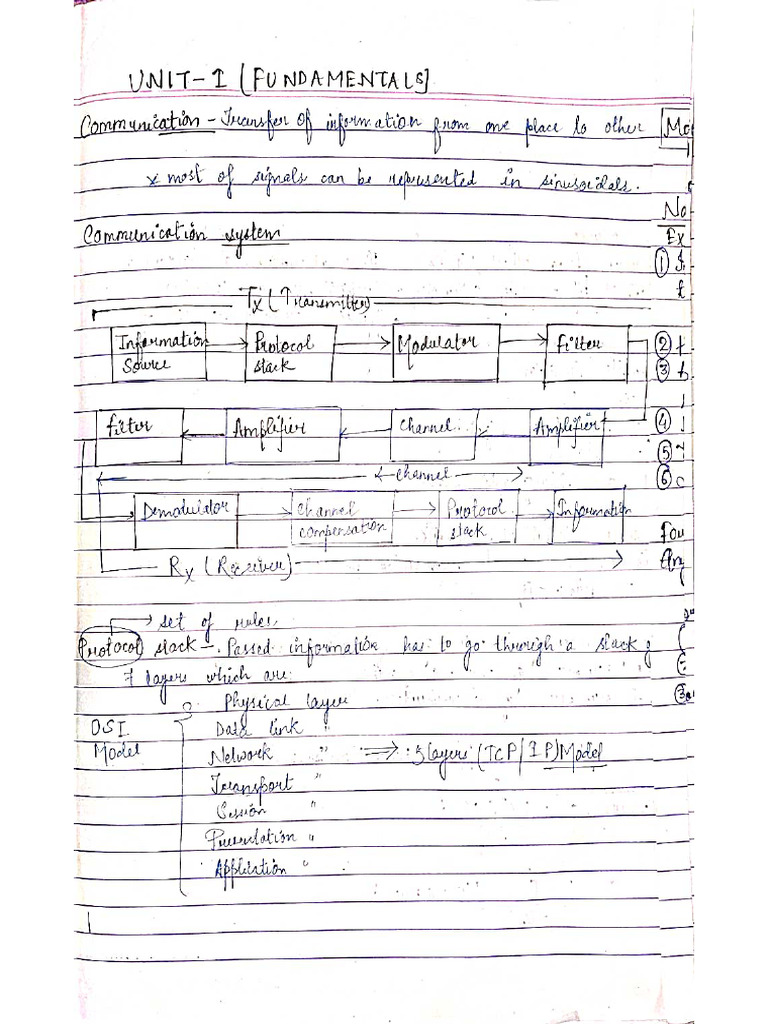 UNIT-1 (FUNDAMENTALS)
Communication - Transfer of information from one place to other
* most of signals can be represented in sinusoidals.
Communication system
Tx (Transmitter)
Information Source
Protocol stack
Modulator
Filter
Filter
Amplifier
Channel
Amplifier
Channel
Demodulator
Channel compensation
Protocol stack
Information
Rx (Receiver)
set of rules
Protocol stack - Passed information has to go through a stack of
7 layers which are:
Physical layer
OSI
Data link "
Model
Network " ⇒ 5 layers (TCP/IP) Model
Transport "
Session "
Presentation "
Application "
No
Ex
①
②
③
④
⑤
⑥